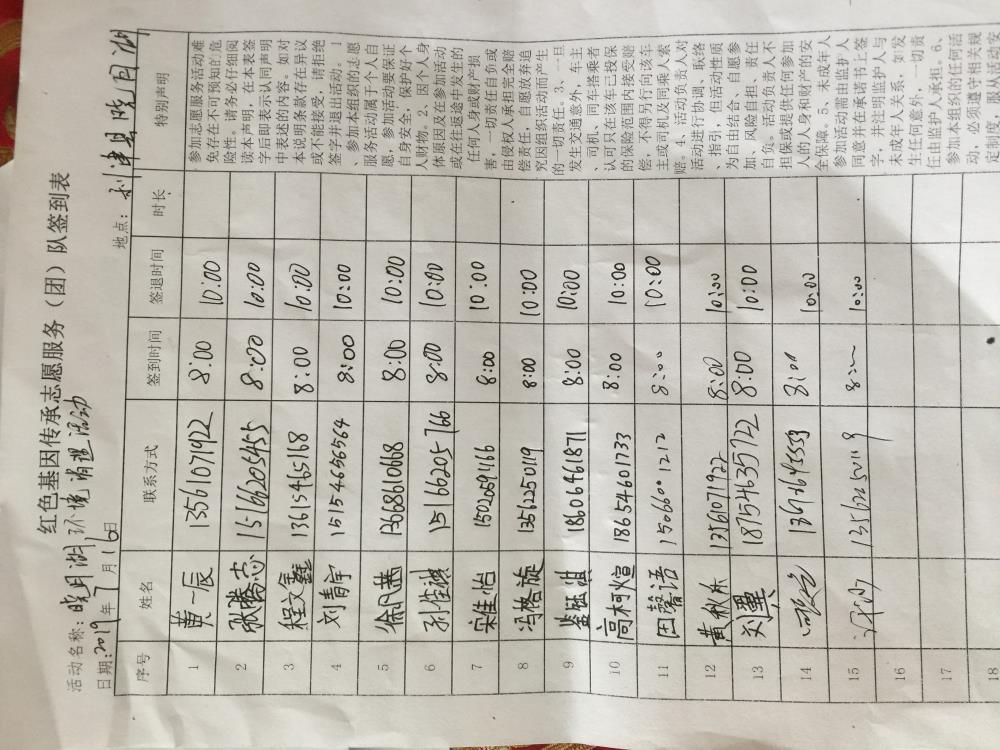 红色基因传承志愿服务（团）队签到表
活动名称：晓月湖环境清理活动
日期：2019年7月16日 地点：利津县晓月湖
序号 姓名 联系方式 签到时间 签退时间 时长 特别声明
1 黄一辰 13561071922 8:00 10:00
2 张腾志 15166205455 8:00 10:00
3 程文鑫 13615465168 8:00 10:00
4 刘青宇 15154656564 8:00 10:00
5 13668610668 8:00 10:00
6 孙佳祺 15166205766 8:00 10:00
7 宋佳怡 15020591166 8:00 10:00
8 冯格旋 13562250119 8:00 10:00
9 18606461871 8:00 10:00
10 高柯煊 18654601733 8:00 10:00
11 田馨语 15066001212 8:00 10:00
12 黄秋东 13561071922 8:00 10:00
13 刘翼 18754635722 8:00 10:00
14 8:00 10:00
15 13562250119 8:00 10:00
16
17
18
参加志愿服务活动难
免存在不可预知的危
险性。请务必仔细阅
读本声明，在本表签
字后即表示认同声明
中表述的内容。如对
本说明条款存在异议
或不能接受，请拒绝
签字并退出活动。1
、参加本组织的志愿
服务活动属于个人自
愿，参加活动要保证
自身安全，保护好个
人财物。2、因个人身
体原因及在参加活动
或在往返途中发生的
任何人身或财产损
害，一切责任自负或
由侵权人承担完全赔
偿责任，自愿放弃追
究因组织活动而产生
的一切责任。3、一旦
发生交通意外，车主
、司机、同车搭乘者
认可只在该车已投保
的保险范围内接受赔
偿，不得另行向该车
主或司机及同乘人索
赔。4、活动负责人对
活动进行协调、联络
、指引；但活动性质
为自由结合、自愿参
加、风险自担、责任
自负。活动负责人不
担保或提供任何参加
人的人身和财产的安
全保障。5、未成年人
参加活动需由监护人
同意并在承诺书上签
字，并注明监护人与
未成年人关系，如发
生任何意外，一切责
任由监护人承担。6、
参加本组织的任何活
动，必须遵守相关规
定制度，服从活动安